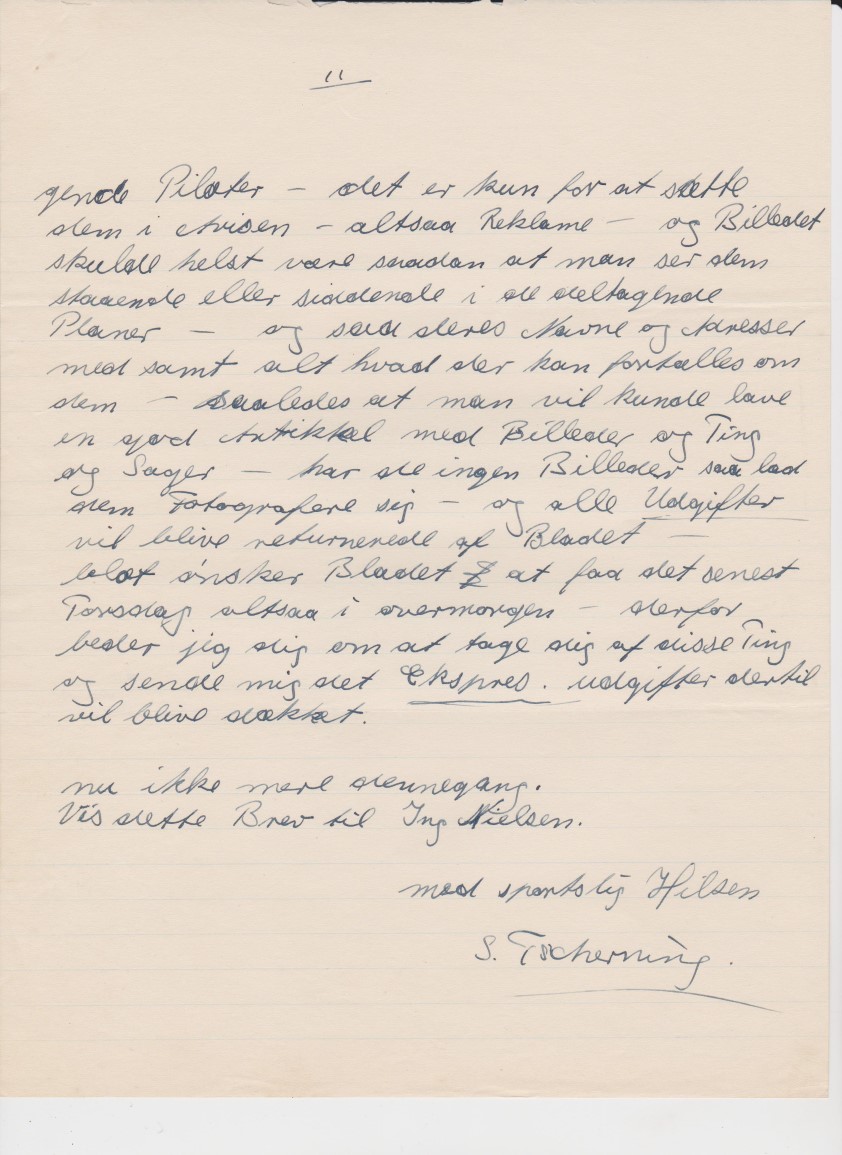 11
gende Piloter – det er kun for at sætte
dem i Avisen – altsaa Reklame – og Billedet
skulde helst være saadan at man ser dem
staaende eller siddende i de deltagende
Planer – og saa deres Navne og Adresser
med samt alt hvad der kan fortælles om
dem – saaledes at man vil kunde lave
en god Artikkel med Billeder og Ting
og Sager – har de ingen Billeder saa lad
dem Fotografere sig – og alle Udgifter
vil blive returnerede af Bladet –
blot ønsker Bladet at faa det senest
Torsdag altsaa i overmorgen – derfor
beder jeg dig om at tage dig af disse Ting
og sende mig det Ekspres. udgifter dertil
vil blive dækket.
nu ikke mere dennegang.
Vis dette Brev til Ing Nielsen.
med sportslig Hilsen
S. Tscherning.